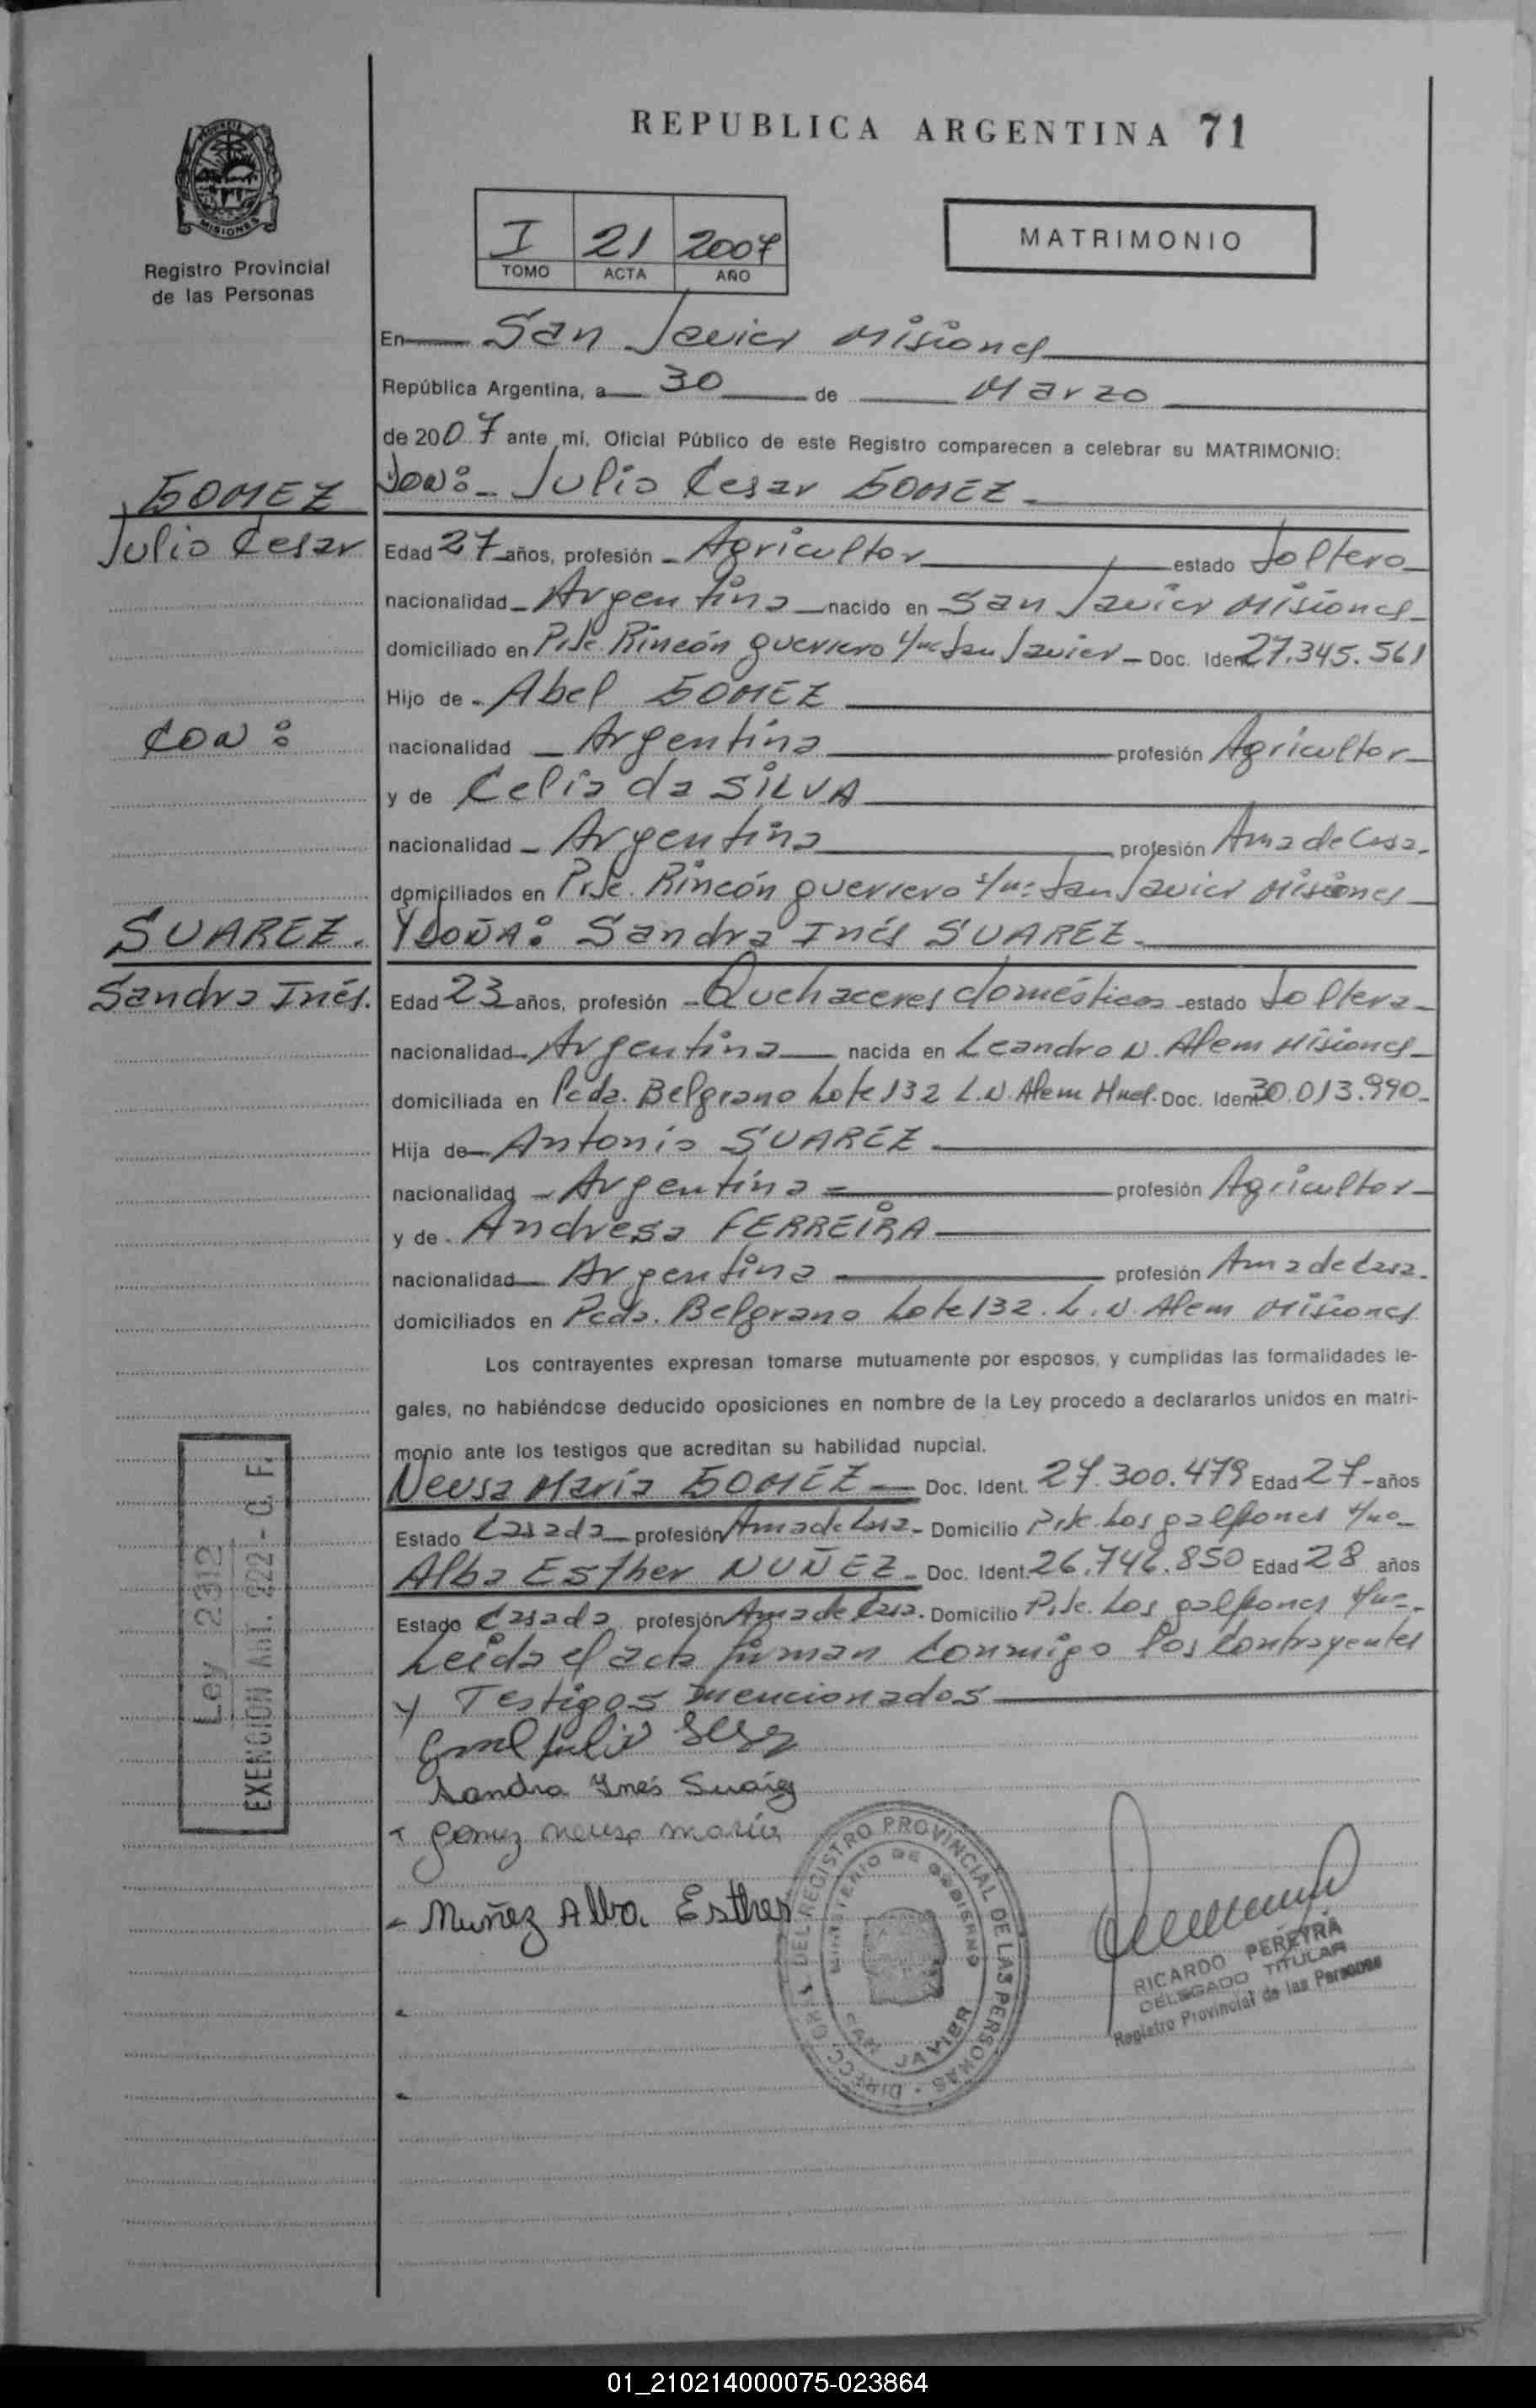 REPUBLICA ARGENTINA 71
PROVINCIA DE
MISIONES
Registro Provincial
de las Personas
I 21 2007
TOMO ACTA AÑO
MATRIMONIO
En San Javier Misiones
República Argentina, a 30 de Marzo
de 2007 ante mí, Oficial Público de este Registro comparecen a celebrar su MATRIMONIO:
GOMEZ
Julio Cesar
DON: Julio Cesar GOMEZ
Edad 27 años, profesión Agricultor estado Soltero
nacionalidad Argentina nacido en San Javier Misiones
domiciliado en Pje. Rincón guerrero s/nº San Javier Doc. Ident. 27.345.561
Hijo de Abel GOMEZ
CON:
nacionalidad Argentina profesión Agricultor
y de Celia da SILVA
nacionalidad Argentina profesión Ama de Casa.
domiciliados en Pje. Rincón guerrero s/nº San Javier Misiones
SUAREZ.
Sandra Inés.
Y DOÑA: Sandra Inés SUAREZ.
Edad 23 años, profesión Quehaceres domésticos estado Soltera
nacionalidad Argentina nacida en Leandro N. Alem Misiones
domiciliada en Pcda. Belgrano Lote 132 L.N. Alem Mnes. Doc. Ident. 30.013.990
Hija de Antonio SUAREZ
nacionalidad Argentina profesión Agricultor
y de Andresa FERREIRA
nacionalidad Argentina profesión Ama de Casa.
domiciliados en Pcda. Belgrano Lote 132. L.N. Alem Misiones
Los contrayentes expresan tomarse mutuamente por esposos, y cumplidas las formalidades le-
gales, no habiéndose deducido oposiciones en nombre de la Ley procedo a declararlos unidos en matri-
monio ante los testigos que acreditan su habilidad nupcial.
Neusa María GOMEZ Doc. Ident. 27.300.479 Edad 27 años
Estado Casada profesión Ama de Casa Domicilio Pje. Los galpones s/nº
Alba Esther NUÑEZ Doc. Ident. 26.746.850 Edad 28 años
Estado Casada profesión Ama de Casa. Domicilio Pje. Los galpones s/nº
Leida el acta firman conmigo los Contrayentes
y Testigos mencionados
Ley 2312
EXENCION Art. 222 - C. F.
Sandra Ynés Suarez
Gomez neusa maria
Nuñez Alba Esther
DIRECC. GRAL. DEL REGISTRO PROVINCIAL DE LAS PERSONAS
MINISTERIO DE GOBIERNO
SAN JAVIER
RICARDO PEREYRA
DELEGADO TITULAR
Registro Provincial de las Personas
01_210214000075-023864